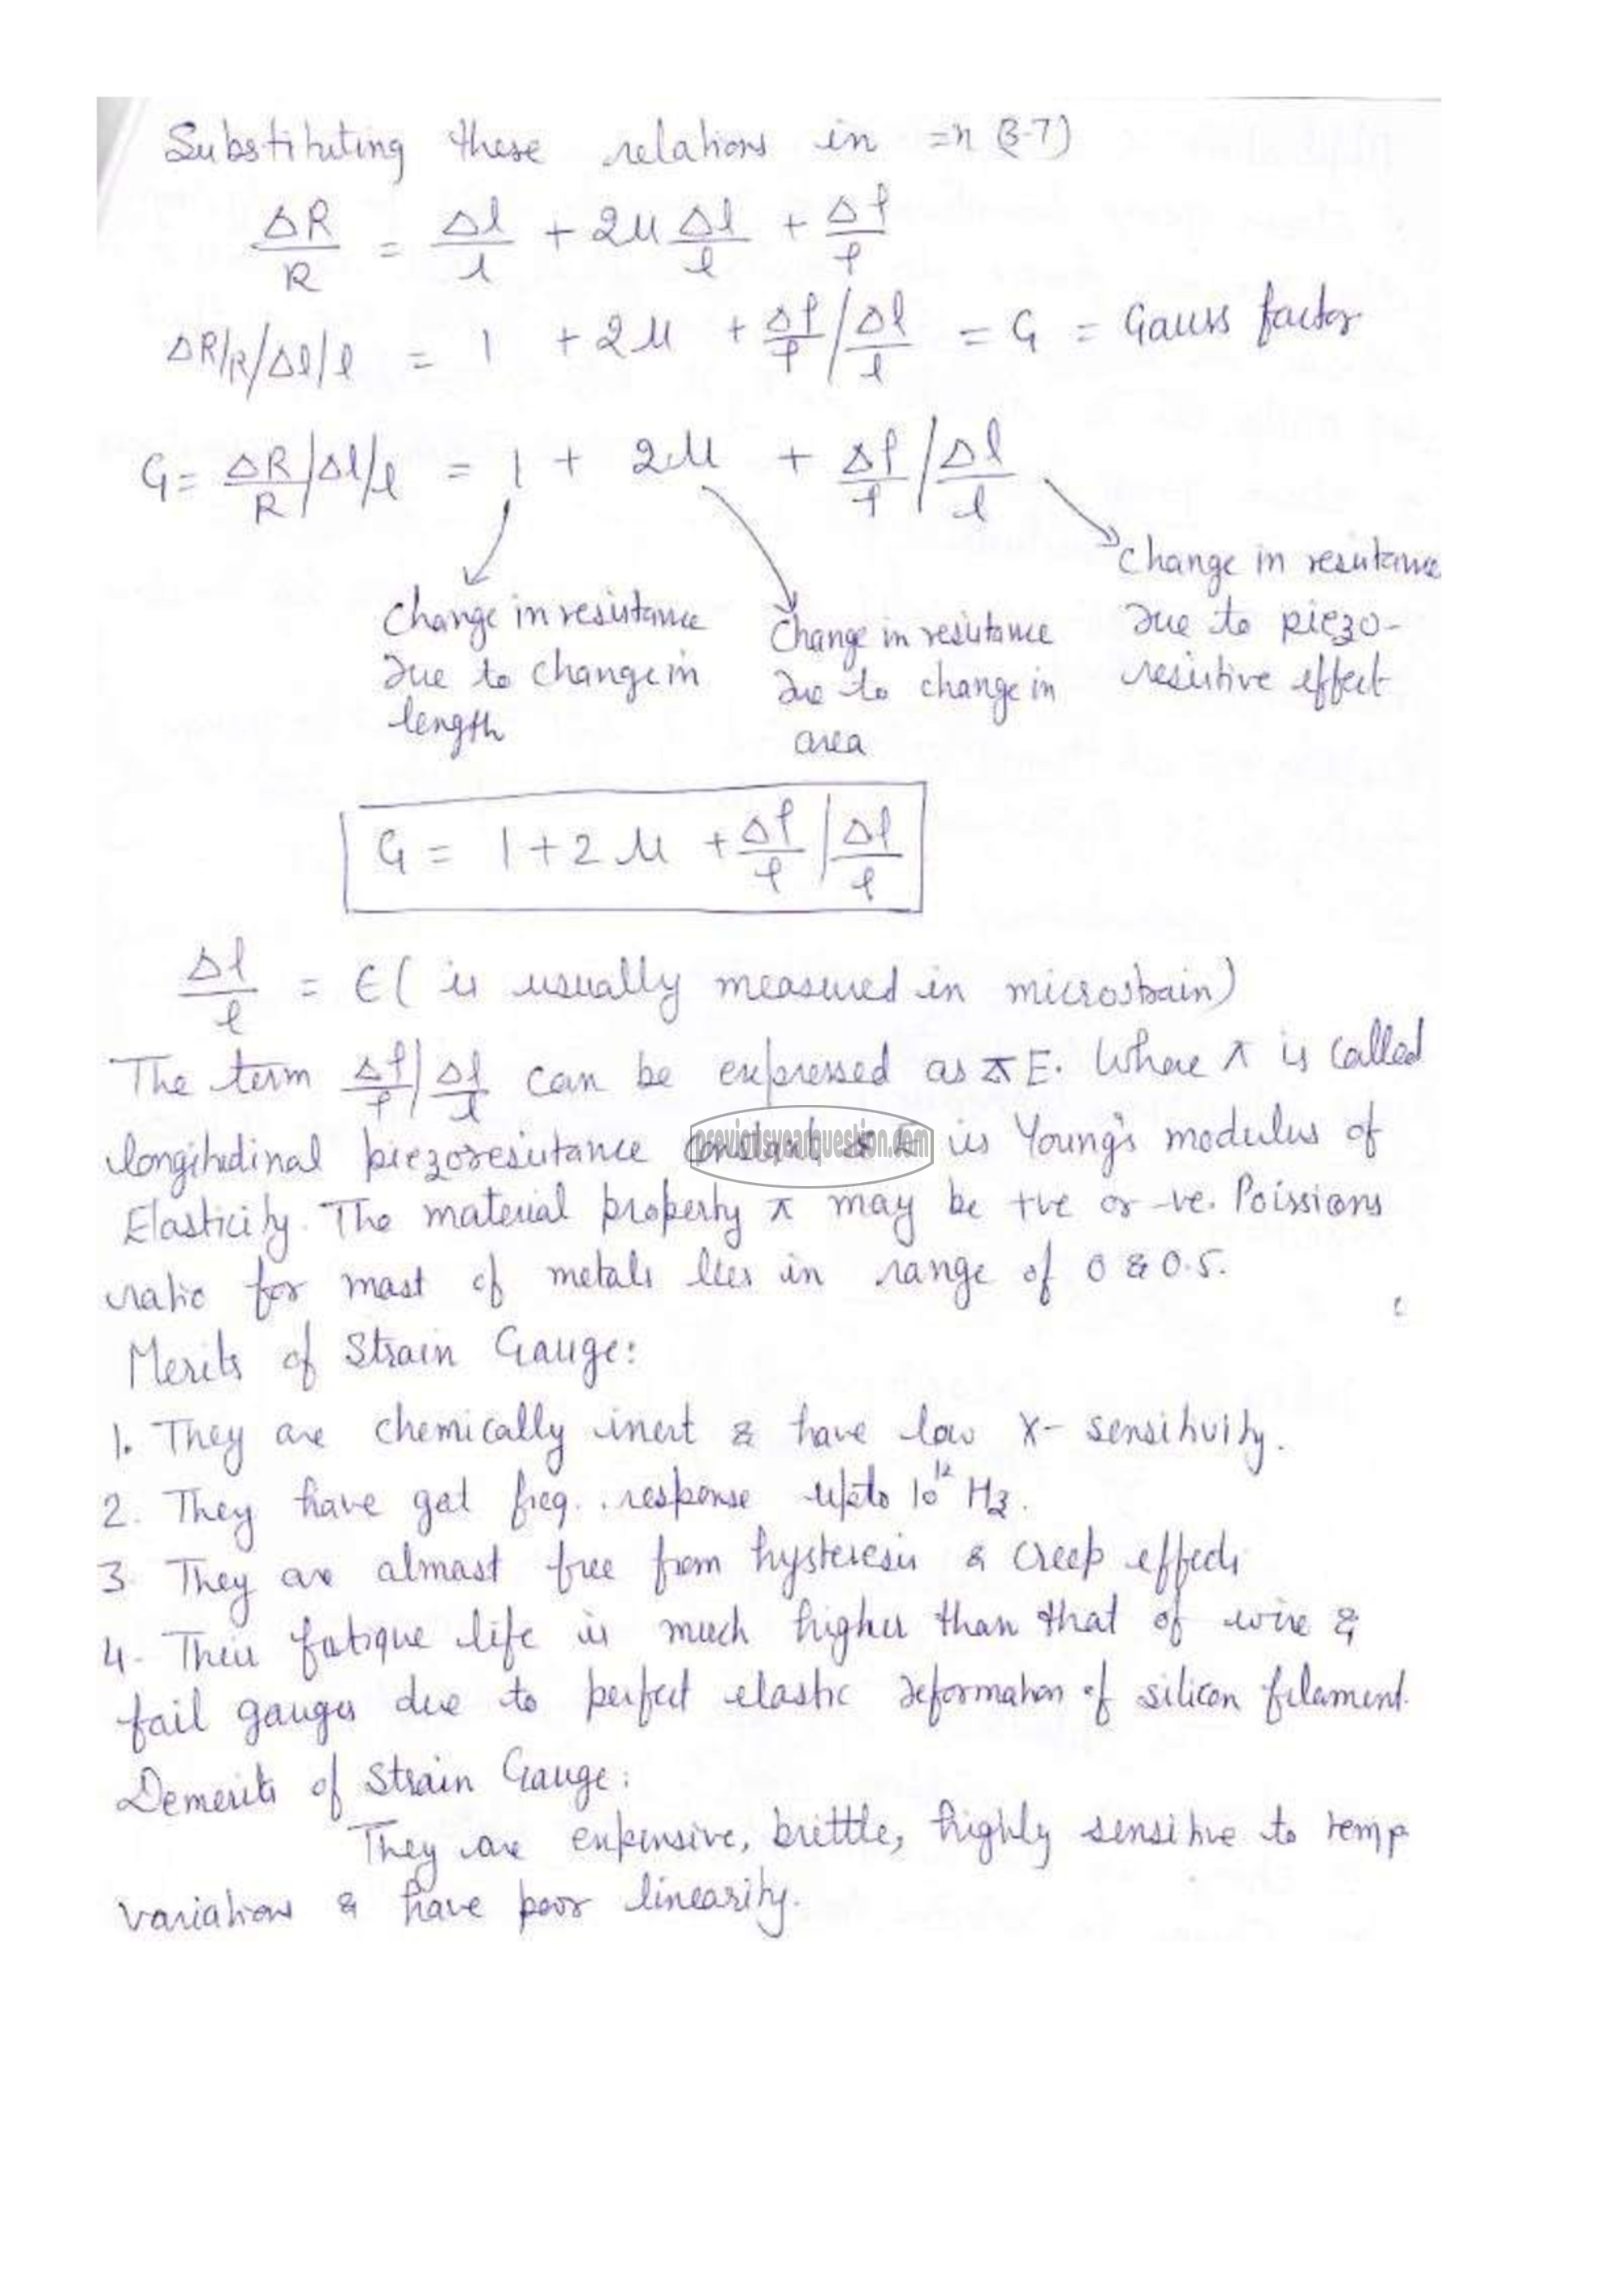 Substituting these relations in =n (3.7)
ΔR/R = Δl/l + 2μ Δl/l + Δρ/ρ
ΔR/R/Δl/l = 1 + 2μ + Δρ/ρ / Δl/l = G = Gauss factor
G = ΔR/R / Δl/l = 1 + 2μ + Δρ/ρ / Δl/l
Change in resistance due to change in length
Change in resistance due to change in area
Change in resistance due to piezo-resistive effect
G = 1+2μ + Δρ/ρ / Δl/l
Δl/l = ϵ ( is usually measured in microstrain)
The term Δρ/ρ / Δl/l can be expressed as πE. Where π is called
longitudinal piezoresistance constant & E is Young's modulus of
previousyearquestion.com
Elasticity. The material property π may be +ve or -ve. Poissions
ratio for most of metals lies in range of 0 & 0.5.
Merits of Strain Gauge:
1. They are chemically inert & have low X- sensitivity.
2. They have got freq. response upto 10¹² Hz.
3. They are almost free from hysteresis & creep effects
4. Their fatigue life is much higher than that of wire &
foil gauges due to perfect elastic deformation of silicon filament.
Demerits of Strain Gauge:
They are expensive, brittle, highly sensitive to temp
variations & have poor linearity.